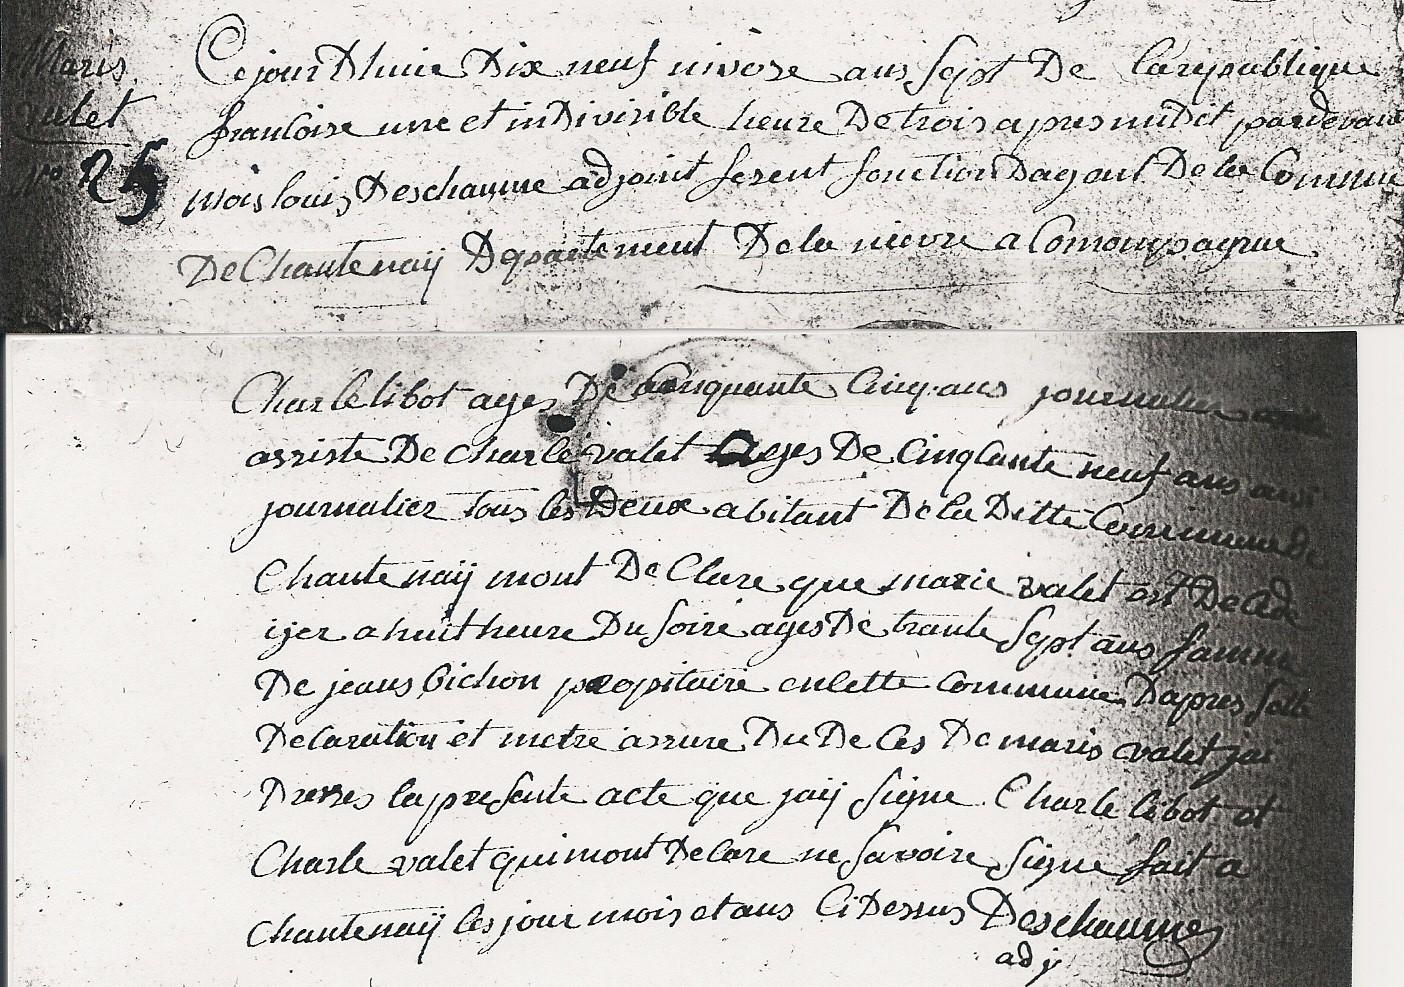 Maris
valet
nro 25
Cejour Dhuie Dix neuf nivose ans sept De Larepublique
francoise une et indivisible heure De trois apres midit pardevant
mois louis Deschaume adjoint fesent fonction Dagent De la Commune
De Chantenaÿ Departement De la nievre a Comompagnue
Charle libot ages De cenquante Cinq ans journalier
assiste De charle valet ages De Cinqcante neuf ans aussi
journalier tous les Deux abitant De la Ditte Commune de
Chantenaÿ mont De Clare que marie valet est Decede
ijer a huit heure Du soire ages De trante sept ans famme
De jeans Bichon propitaire en cette commune Dapres sette
Declaration et metre assure Du De ces De maris valet jai
Dresses la presente acte que jaÿ signe Charle libot et
Charle valet qui mont Declare ne savoire signe fait a
chantenaÿ les jour mois et ans Ci Dessus Deschaumes
adj